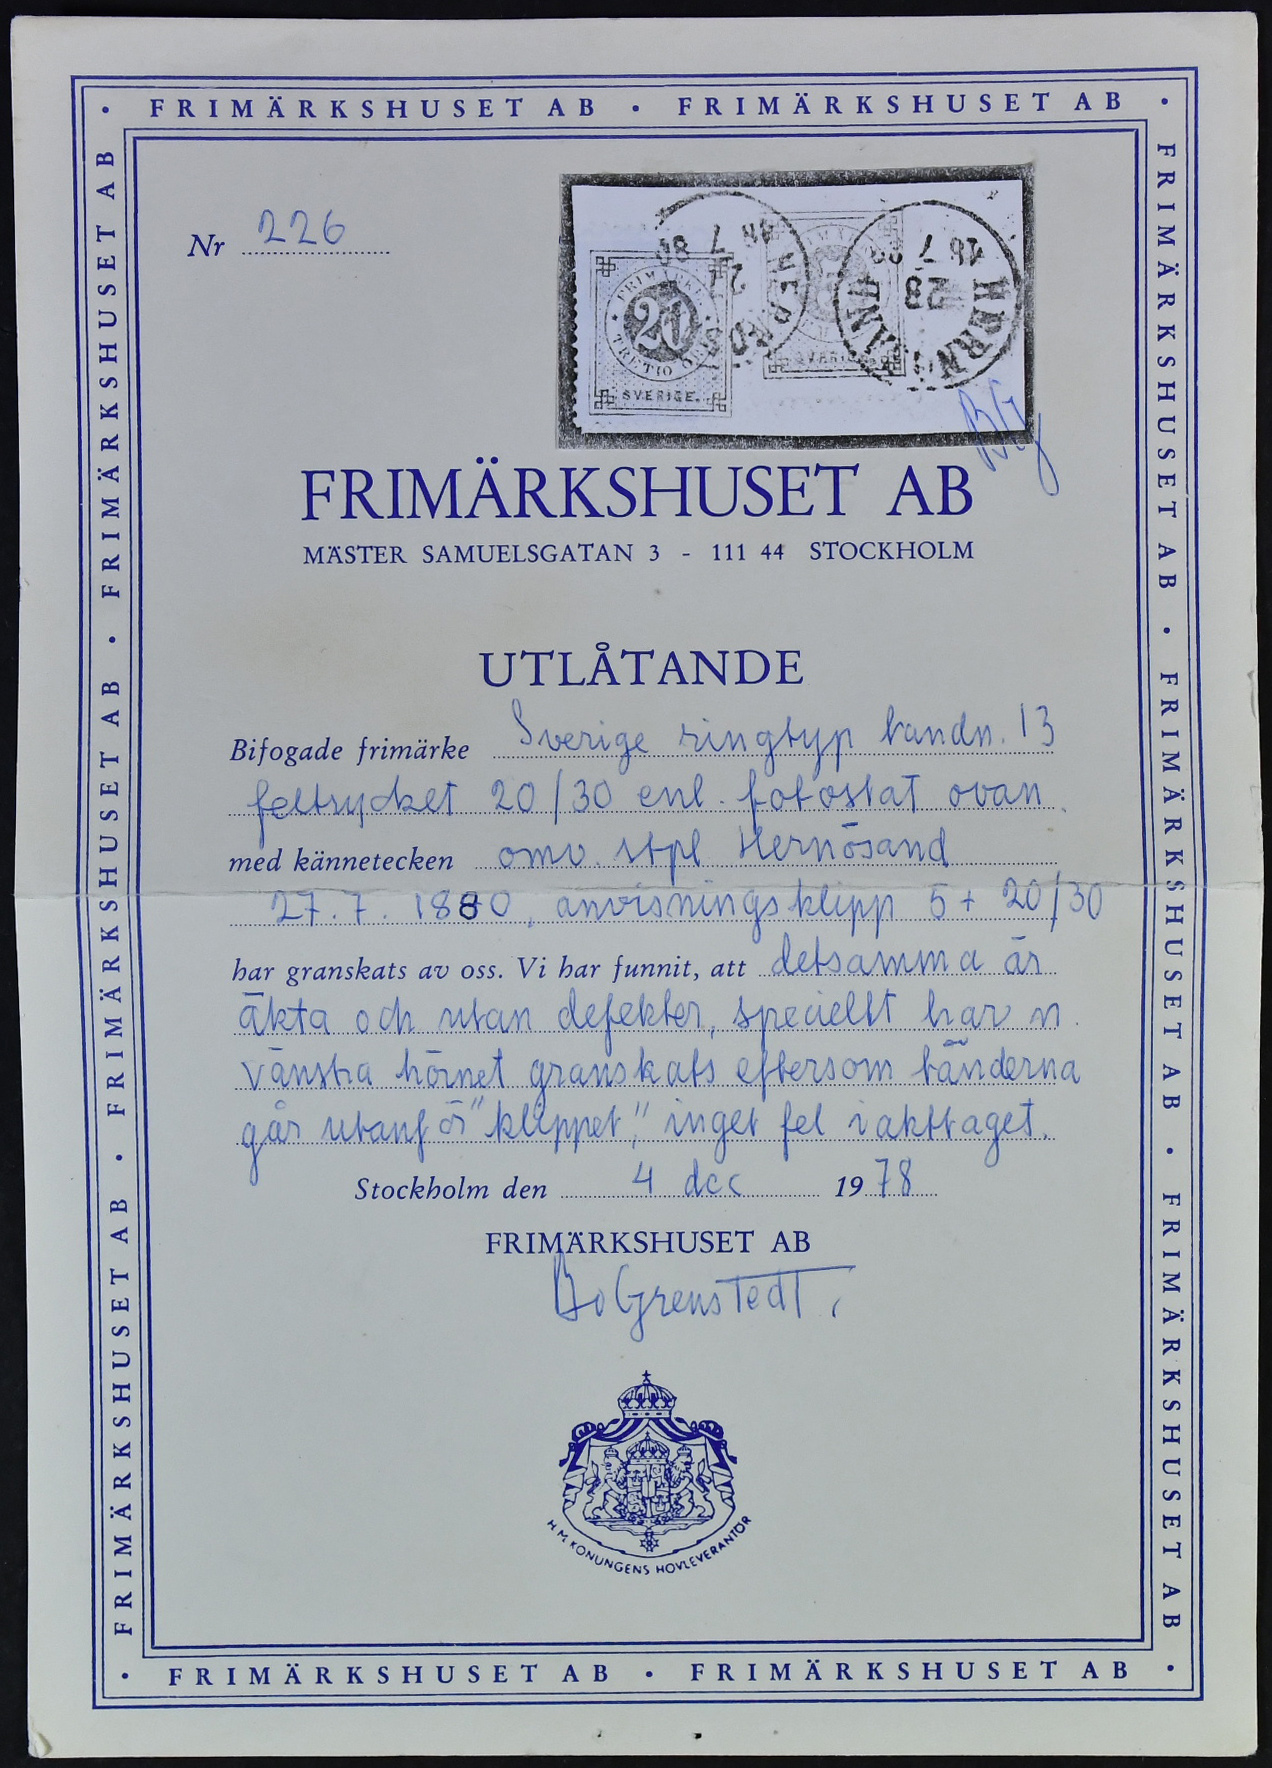 · FRIMÄRKSHUSET AB · FRIMÄRKSHUSET AB ·
Nr 226
FRIMÄRKE
20
TRETIO ÖRE
SVERIGE.
SVERIGE.
HERNÖSAND
28
18 7 80
BG
FRIMÄRKSHUSET AB
MÄSTER SAMUELSGATAN 3 - 111 44 STOCKHOLM
UTLÅTANDE
Bifogade frimärke Sverige ringtyp tandn. 13
feltrycket 20/30 enl. fotostat ovan
med kännetecken omv. stpl Hernösand
27.7.1880, anvisningsklipp 5+20/30
har granskats av oss. Vi har funnit, att detsamma är
äkta och utan defekter, speciellt har n
vänstra hörnet granskats eftersom tänderna
går utanför "klippet", inget fel iakttaget.
Stockholm den 4 dec 1978
FRIMÄRKSHUSET AB
Bo Grenstedt
H M KONUNGENS HOVLEVERANTÖR
FRIMÄRKSHUSET AB · FRIMÄRKSHUSET AB · FRIMÄRKSHUSET AB
FRIMÄRKSHUSET AB · FRIMÄRKSHUSET AB · FRIMÄRKSHUSET AB
· FRIMÄRKSHUSET AB · FRIMÄRKSHUSET AB ·